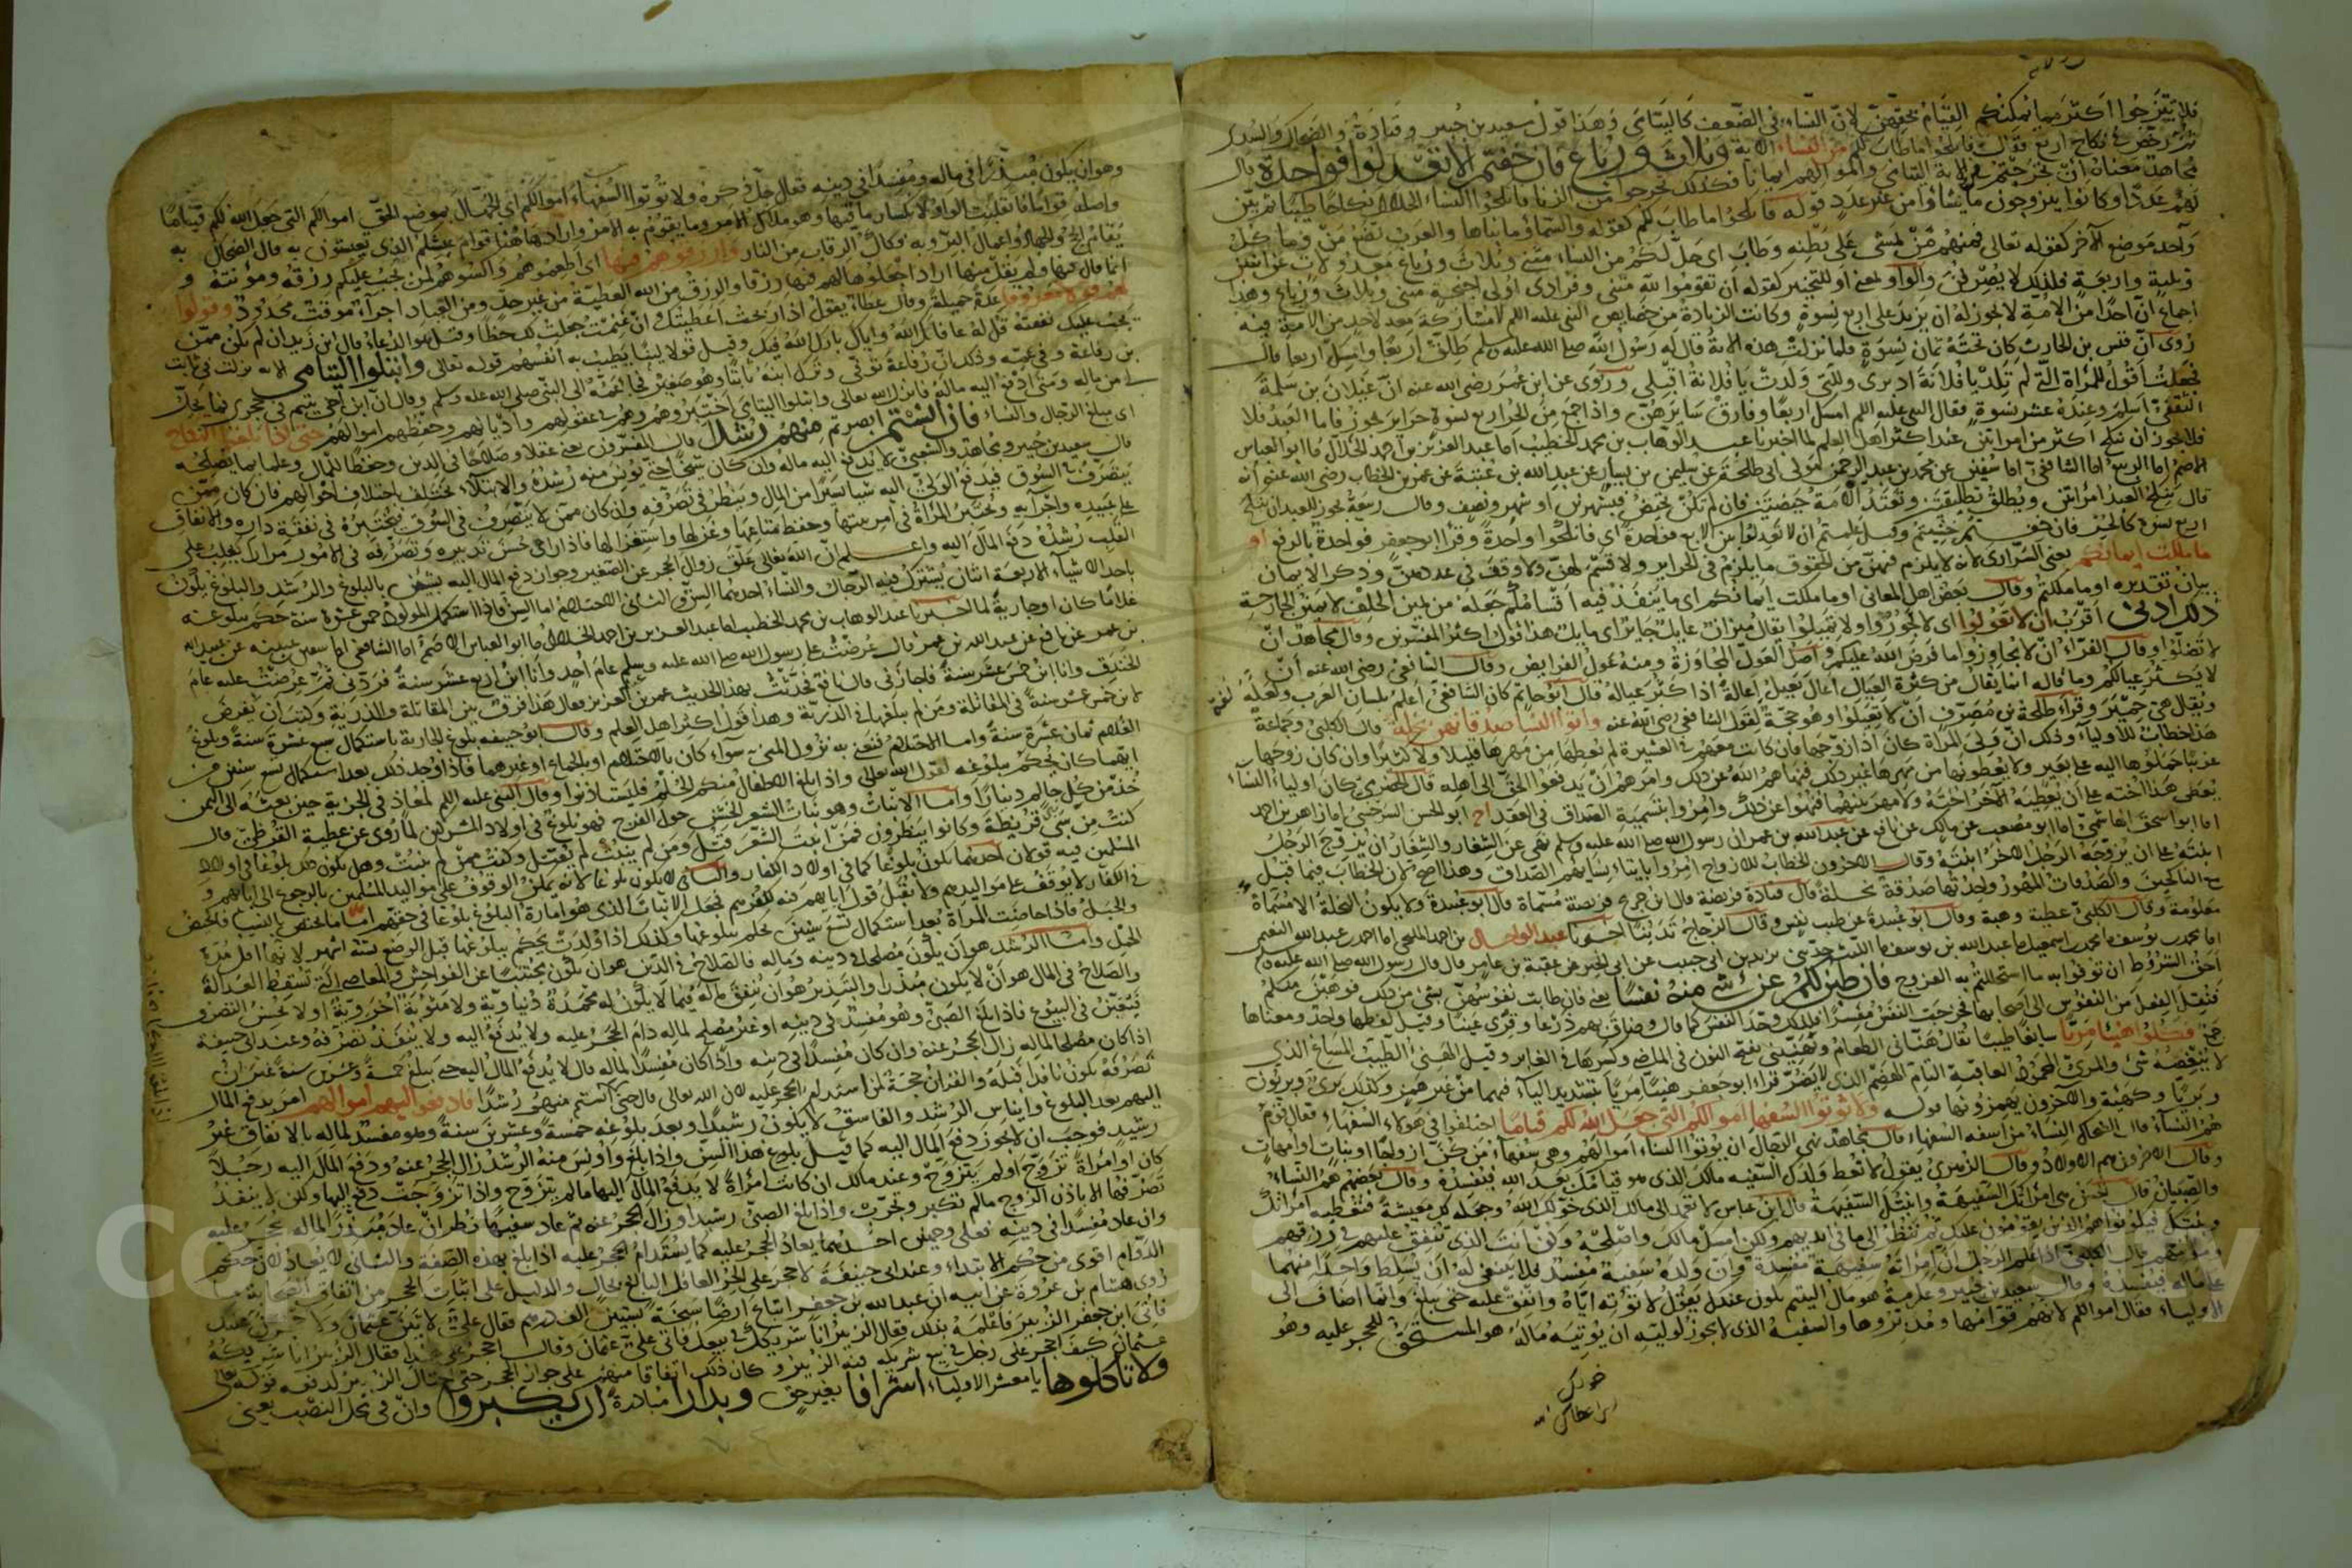 فلا يتزوجوا اكثر مما يمكنكم القيام بحقهن لان النساء في الضعف كاليتامى وهذا قول سعيد بن جبير وقتادة والضحاك والسدي
ثم رخص في نكاح اربع فقال فانكحوا ما طاب لكم من النساء الاية وثلاث ورباع فان خفتم الا تعدلوا فواحدة قال
مجاهد معناه ان تحرجتم من ولاية اليتامى واموالهم ايمانا فكذلك تحرجوا من الزنا فانكحوا النساء الحلال نكاحا طيبا ثم بين
لهم عددا وكانوا يتزوجون ما شاؤا من غير عدد قوله فانكحوا ما طاب لكم كقوله والسماء وما بناها والعرب تضع من وما كل
واحد موضع الآخر كقوله تعالى فمنهم من يمشي على بطنه وطاب اي حل لكم من النساء مثنى وثلاث ورباع معدولات عن اثنين
وثلثة واربعة فلذلك لا يصرفن والواو بمعنى او للتخيير كقوله ان تقوموا لله مثنى وفرادى اولي اجنحة مثنى وثلاث ورباع وهذا
اجماع ان احدا من الامة لا يجوز له ان يزيد على اربع نسوة وكانت الزيادة من خصايص النبي عليه السلم لا مشاركة معه لاحد من الامة فيه
روى ان قيس بن الحارث كان تحته ثمان نسوة فلما نزلت هذه الاية قال له رسول الله صلى الله عليه وسلم طلق اربعا وامسك اربعا قال
فجعلت اقول للمراة التي لم تلد يا فلانة ادبري وللتي ولدت يا فلانة اقبلي وروى عن ابن عمر رضي الله عنه ان غيلان بن سلمة
الثقفي اسلم وعنده عشر نسوة فقال النبي عليه السلم امسك اربعا وفارق سايرهن واذا جمع من الحراير اربع نسوة حراير يجوز فاما العبد فلا
فلا يجوز ان ينكح اكثر من امراتين عند اكثر اهل العلم لما اخبرنا عبد الوهاب بن محمد الخطيب اما عبد العزيز بن احمد الخلال ما ابو العباس
الاصم اما الربيع اما الشافعي اما سفين عن محمد بن عبد الرحمن مولى ابي طلحة عن سليمن بن يسار عن عبد الله بن عتبة عن عمر بن الخطاب رضي الله عنه انه
قال ينكح العبد امراتين ويطلق تطليقتين وتعتد الامة حيضتين فان لم تكن تحيض فبشهرين او شهر ونصف وقال ربيعة يجوز للعبد ان ينكح
اربع نسوة كالحر فان خفتم خشيتم وقيل علمتم ان لا تعدلوا بين الاربع فواحدة اي فانكحوا واحدة وقرأ ابو جعفر فواحدة بالرفع او
ما ملكت ايمانكم يعني السراري لانه لا يلزم فيهن من الحقوق ما يلزم في الحراير ولا قسم لهن ولا وقف في عددهن وذكر الايمان
بيان تقديره او ما ملكتم وقال بعض اهل المعاني او ما ملكت ايمانكم اي ما ينفذ فيه اقسامكم جعله من يمين الحلف لا يمين الجارحة
ذلك ادنى اقرب ان لا تعولوا اي لا تجوروا ولا تميلوا يقال ميزان عايل جاير اي مايل هذا قول اكثر المفسرين وقال مجاهد ان
لا تضلوا وقال الفراء ان لا تجاوزوا ما فرض الله عليكم واصل العول المجاوزة ومنه عول الفرايض وقال الشافعي رضي الله عنه ان
لا يكثر عيالكم وما قاله احد انما يقال من كثرة العيال اعال يعيل اعالة اذا كثر عياله قال ابو حاتم كان الشافعي اعلم بلسان العرب ولعله لغة
ويقال هي حمير وقراءة طلحة بن مصرف ان لا تعيلوا وهو حجة لقول الشافعي رضي الله عنه وآتوا النسا صدقاتهن نحلة قال الكلبي وجماعة
هذا خطاب للاولياء وذلك ان ولي المراة كان اذا زوجها فان كانت معهم في العشيرة لم يعطها من مهرها قليلا ولا كثيرا وان كان زوجها
غريبا حملوها اليه على بعير ولا يعطونها من مهرها غير ذلك فنهاهم الله عن ذلك وامرهم ان يدفعوا الحق الى اهله قال الحضرمي كان اولياء النساء
يعطي هذا اخته على ان يعطيه الآخر اخته ولا مهر بينهما فنهوا عن ذلك وامروا بتسمية الصداق في العقد ابو الحسن السرخسي اما زاهر بن احمد
اما ابو اسحق الهاشمي اما ابو مصعب عن مالك عن نافع عن عبد الله بن عمر ان رسول الله صلى الله عليه وسلم نهى عن الشغار والشغار ان يزوج الرجل
ابنته على ان يزوجه الرجل الآخر ابنته وقال الآخرون الخطاب للازواج امروا بايتاء نسايهم الصداق وهذا اصح لان الخطاب فيما قبل
مع الناكحين والصدقات المهور واحدتها صدقة نحلة قال قتادة فريضة قال ابن جريج فريضة مسماة قال ابو عبيدة ولا يكون النحلة الا مسماة
معلومة وقال الكلبي عطية وهبة وقال ابو عبيدة عن طيب نفس وقال الزجاج تدينا اخبرنا عبد الواحد بن احمد المليحي اما احمد بن عبد الله النعيمي
اما محمد بن يوسف ما محمد بن اسمعيل ما عبد الله بن يوسف ما الليث حدثني يزيد بن ابي حبيب عن ابي الخير عن عقبة بن عامر قال قال رسول الله صلى الله عليه وسلم
احق الشروط ان توفوا به ما استحللتم به الفروج فان طبن لكم عن شيء منه نفسا يعني فان طابت نفوسهن بشيء من ذلك فوهبن منكم
فنقل الفعل من النفوس الى اصحابها فخرجت النفس مفسرا فلذلك وحد النفس كما قال وضاق بهم ذرعا وقري عينا وقيل لفظها واحد ومعناها
جمع فكلوه هنيئا مريئا سايغا طيبا يقال هناني الطعام يهنيني بفتح النون في الماضي وكسرها في الغابر وقيل الهنيء الطيب المساغ الذي
لا ينغصه شيء والمريء المحمود العاقبة التام الهضم الذي لا يضر قراء ابو جعفر هنيا مريا بتشديد الياء فيهما من غير همز وكذلك بري وبريون
وبريا وكهيئة والآخرون يهمزونها قوله ولا تؤتوا السفهاء اموالكم التي جعل الله لكم قياما اختلفوا في هؤلاء السفهاء فقال قوم
هم النساء قال الضحاك النساء من اسفه السفهاء وقال مجاهد نهى الرجال ان يؤتوا النساء اموالهم وهن سفهاء من كن ازواجا او بنات او امهات
وقال الآخرون هم الاولاد وقال الزهري يقول لا تعط ولدك السفيه مالك الذي هو قيامك بعد الله فيفسده وقال بعضهم هم النساء
والصبيان قال الحسن هي امراتك السفيهة وابنك السفيه قال ابن عباس لا تعمد الى مالك الذي خولك الله وجعله لك معيشة فتعطيه امراتك
وبنيك فيكونوا هم الذين يقومون عليك ثم تنظر الى ما في ايديهم ولكن امسك مالك واصلحه وكن انت الذي تنفق عليهم في رزقهم
ومؤنتهم قال الكلبي اذا علم الرجل ان امراته سفيهة مفسدة وان ولده سفيه مفسد فلا ينبغي له ان يسلط واحدا منهما
على ماله فيفسده وقال سعيد بن جبير وعكرمة هو مال اليتيم يكون عندك يقول لا تؤته اياه وانفق عليه حتى يبلغ وانما اضاف الى
الاولياء فقال اموالكم لانهم قوامها ومدبروها والسفيه الذي لا يجوز لوليه ان يؤتيه ماله هو المستحق للحجر عليه وهو
وهو ان يكون مبذرا في ماله ومفسدا في دينه فقال جل ذكره ولا تؤتوا السفهاء اموالكم اي الجهال بموضع الحق اموالكم التي جعل الله لكم قياما
واصله قواما فانقلبت الواو لانكسار ما قبلها وهو ملاك الامر وما يقوم به الامر واراد هاهنا قوام عيشكم الذي تعيشون به قال الضحاك به
يقام الحج والجهاد واعمال البر وبه فكاك الرقاب من النار وارزقوهم فيها اي اطعموهم واكسوهم لمن يجب عليكم رزقه ومؤنته و
انما قال فيها ولم يقل منها اراد اجعلوا لهم فيها رزقا والرزق من الله العطية من غير حد ومن العباد اجراء موقت محدود وقولوا
لهم قولا معروفا عدة جميلة وقال عطاء يقول اذا ربحت اعطيتك وان غنمت جعلت لك حظا وقيل هو الدعاء قال ابن زيد ان لم يكن ممن
يجب عليك نفقته قل له عافاك الله واياك بارك الله فيك وقيل قولا لينا يطيب به انفسهم قوله تعالى وابتلوا اليتامى الاية نزلت في ثابت
بن رفاعة وفي عمه وذلك ان رفاعة توفي وترك ابنه ثابتا وهو صغير فجا عمه الى النبي صلى الله عليه وسلم وقال ان ابن اخي يتيم في حجري فما يحل
لي من ماله ومتى ادفع اليه ماله فانزل الله تعالى وابتلوا اليتامى اختبروهم في عقولهم واديانهم وحفظهم اموالهم حتى اذا بلغوا النكاح
اي مبلغ الرجال والنساء فان آنستم ابصرتم منهم رشدا قال المفسرون يعني عقلا وصلاحا في الدين وحفظا للمال وعلما بما يصلحه
قال سعيد بن جبير ومجاهد والشعبي لا يدفع اليه ماله وان كان شيخا حتى يؤنس منه رشده والابتلاء يختلف باختلاف احوالهم فان كان ممن
يتصرف في السوق فيدفع الولي اليه شيا يسيرا من المال وينظر في تصرفه وان كان ممن لا يتصرف في السوق فيختبره في نفقة داره والانفاق
على عبيده واجرآيه وتختبر المراة في امر بيتها وحفظ متاعها وغزلها واستغزالها فاذا راى حسن تدبيره وتصرفه في الامور مرارا يغلب على
القلب رشده دفع المال اليه واعلم ان الله تعالى علق زوال الحجر عن الصغير وجواز دفع المال اليه بشيئين بالبلوغ والرشد والبلوغ يكون
باحد الاشياء الاربعة اثنان يشترك فيه الرجال والنساء احدهما السن والثاني الاحتلام اما السن فاذا استكمل المولود خمس عشرة سنة حكم ببلوغه
غلاما كان او جارية لما اخبرنا عبد الوهاب بن محمد الخطيب اما عبد العزيز بن احمد الخلال ما ابو العباس الاصم اما الشافعي اما سفين بن عيينه عن عبيد الله
بن عمر عن نافع عن عبد الله بن عمر قال عرضت على رسول الله صلى الله عليه وسلم عام احد وانا ابن اربع عشر سنة فردني ثم عرضت عليه عام
الخندق وانا ابن خمس عشر سنة فاجازني قال نافع فحدثت بهذا الحديث عمر بن عبد العزيز فقال هذا فرق بين المقاتلة والذرية وكتب ان يفرض
لابن خمس عشر سنة في المقاتلة ومن لم يبلغها في الذرية وهذا قول اكثر اهل العلم وقال ابو حنيفه بلوغ الجارية باستكمال سبع عشرة سنة وبلوغ
الغلام ثمان عشرة سنة واما الاحتلام فنعني به نزول المني سوآء كان بالاحتلام او بالجماع او غيرهما فاذا وجد ذلك بعد استكمال تسع سنين من
ايهما كان يحكم ببلوغه لقول الله تعالى واذا بلغ الاطفال منكم الحلم فليستاذنوا وقال النبي عليه السلم لمعاذ في الجزية حين بعثه الى اليمن
خذ من كل حالم دينارا واما الانبات وهو نبات الشعر الخشن حول الفرج فهو بلوغ في اولاد المشركين لما روى عن عطية القرظي قال
كنت من سبي قريظة وكانوا ينظرون فمن انبت الشعر قتل ومن لم ينبت لم يقتل وكنت ممن لم ينبت وهل يكون ذلك بلوغا في اولاد
المسلمين فيه قولان احدهما يكون بلوغا كما في اولاد الكفار والثاني لا يكون بلوغا لانه يمكن الوقوف على مواليد المسلمين بالرجوع الى ابايهم و
في الكفار لا يوقف على مواليدهم ولا يقبل قول ابايهم فيه لكفرهم فجعل الانبات الذي هو امارة البلوغ بلوغا في حقهم اما ما يختص بالنسا فالحيض
والحبل فاذا حاضت المراة بعد استكمال تسع سنين يحكم ببلوغها وكذلك اذا ولدت يحكم ببلوغها قبل الوضع بستة اشهر لانها اقل مدة
الحمل واما الرشد هو ان يكون مصلحا في دينه وماله فالصلاح في الدين هو ان يكون مجتنبا عن الفواحش والمعاصي التي تسقط العدالة
والصلاح في المال هو ان لا يكون مبذرا والتبذير هو ان ينفق ماله فيما لا يكون له محمدة دنياوية ولا مثوبة اخروية او لا يحسن التصرف
فيغبن في البيوع فاذا بلغ الصبي وهو مفسد في دينه او غير مصلح لماله دام الحجر عليه ولا يدفع اليه ولا ينفذ تصرفه وعند ابي حنيفة
اذا كان مصلحا لماله زال الحجر عنه وان كان مفسدا في دينه واذا كان مفسدا لماله قال لا يدفع المال اليه حتى يبلغ خمسة وعشرين سنة غير ان
تصرفه يكون نافذا قبله والقران حجة لمن استدام الحجر عليه لان الله تعالى قال حتى آنستم منهم رشدا فادفعوا اليهم اموالهم امر بدفع المال
اليهم بعد البلوغ وايناس الرشد والفاسق لا يكون رشيدا وبعد بلوغه خمسة وعشرين سنة وهو مفسد لماله بالاتفاق غير
رشيد فوجب ان لا يجوز دفع المال اليه كما قبل بلوغ هذا السن واذا بلغ واونس منه الرشد زال الحجر عنه ودفع المال اليه رجلا
كان او امراة تزوج او لم يتزوج وعند مالك ان كانت امراة لا يدفع المال اليها ما لم يتزوج واذا تزوجت دفع اليها ولكن لا ينفذ
تصرفها الا باذن الزوج مالم تكبر وتجرب واذا بلغ الصبي رشيدا وزال الحجر عنه ثم عاد سفيها نظر ان عاد مبذرا لماله يحجر عليه
وان عاد مفسدا في دينه فعلى وجهين احدهما يعاد الحجر عليه كما يستدام الحجر عليه اذا بلغ بهذه الصفة والثاني لا يعاد لان حكم
الدوام اقوى من حكم الابتداء وعند ابي حنيفة لا حجر على الحر العاقل البالغ بحال والدليل على اثبات الحجر من اتفاق الصحابة ما
روى هشام بن عروة عن ابيه ان عبد الله بن جعفر ابتاع ارضا سبخة بستين الف درهم فقال علي
فاتى ابن جعفر الزبير فاعلمه بذلك فقال الزبير انا شريكك في بيعك فاتى علي عثمان وقال احجر على هذا فقال الزبير انا شريكه
عثمان كيف احجر على رجل في بيع شريكه فيه الزبير وكان ذلك اتفاقا منهم على جواز الحجر حتى احتال الزبير لدفعه قوله تعالى
ولا تاكلوها يا معشر الاولياء اسرافا بغير حق وبدارا مبادرة ان يكبروا وان في محل النصب يعني